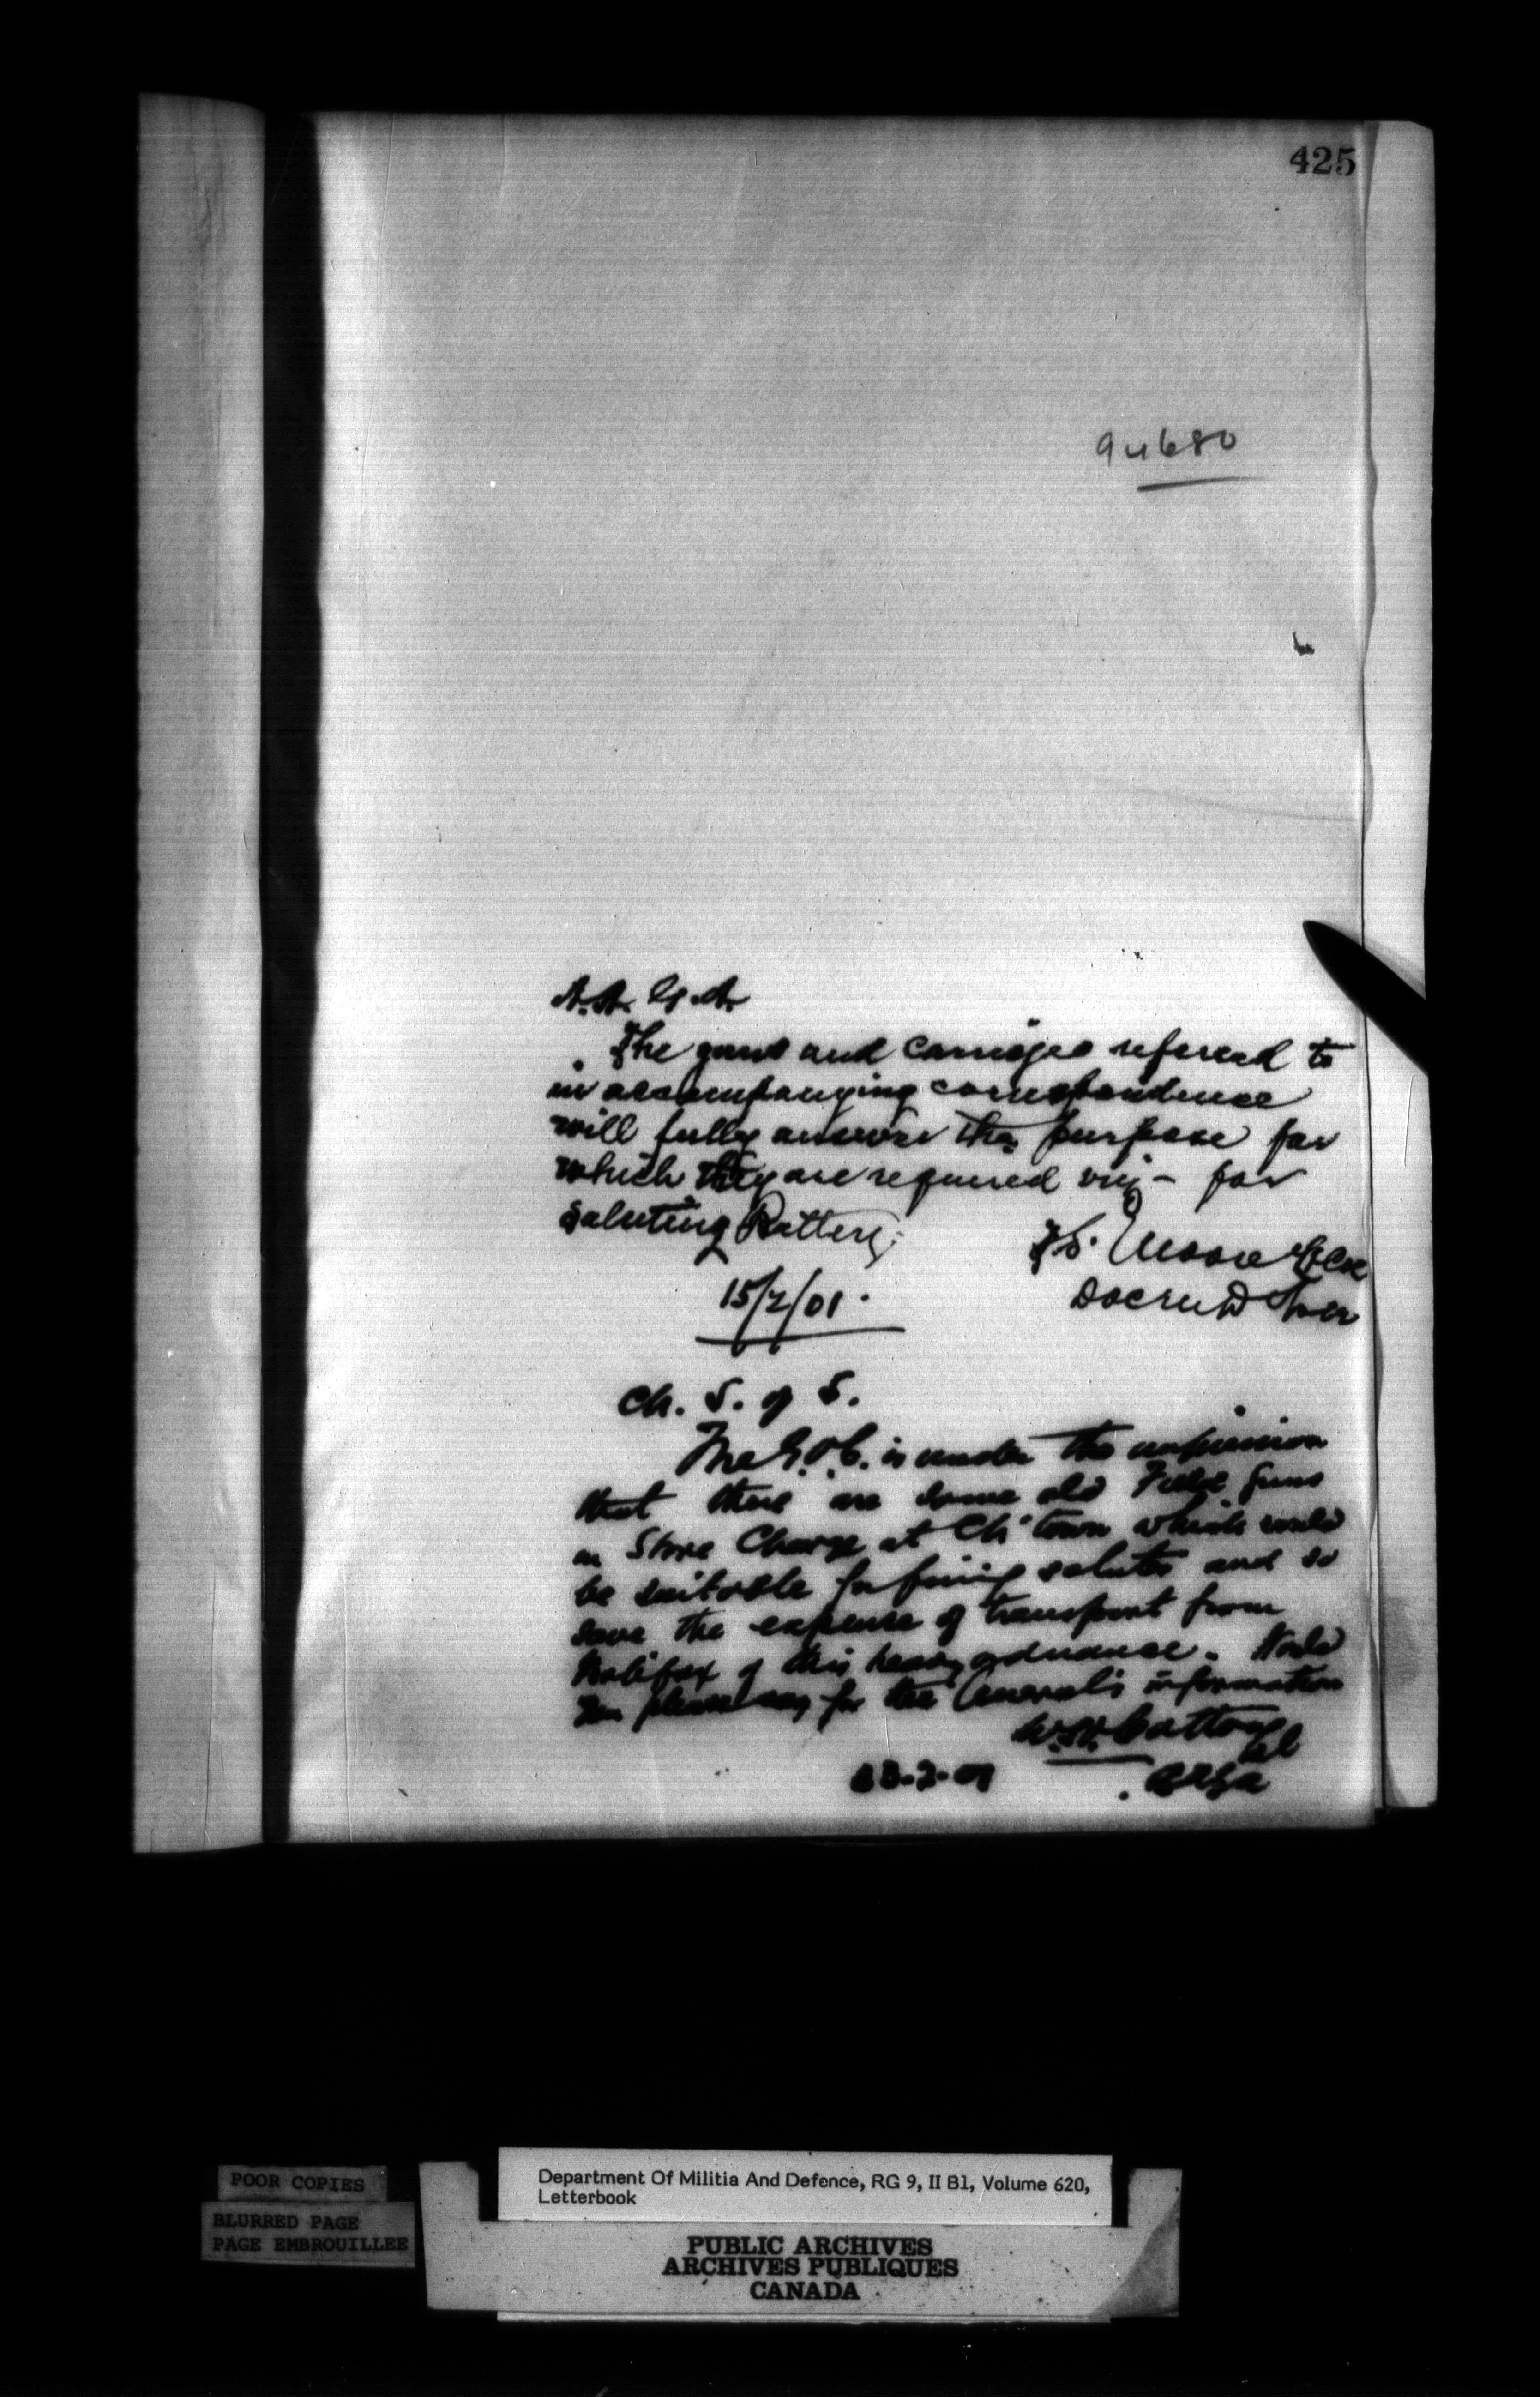 425
94680
A.A.G.A.
The guns and carriages referred to
in accompanying correspondence
will fully answer the purpose for
which they are required viz - for
saluting Battery.
Moore
15/2/01.
Ch. S. of S.
The G.O.C. is under the impression
that there are some old Field Guns
in Store Charge at Ch'town which would
be suitable for firing salutes and so
save the expense of transport from
Halifax of this heavy ordnance. Would
you please say for the General's information
W.H. Cotton Col
-2-01
POOR COPIES
BLURRED PAGE
PAGE EMBROUILLEE
Department Of Militia And Defence, RG 9, II B1, Volume 620,
Letterbook
PUBLIC ARCHIVES
ARCHIVES PUBLIQUES
CANADA